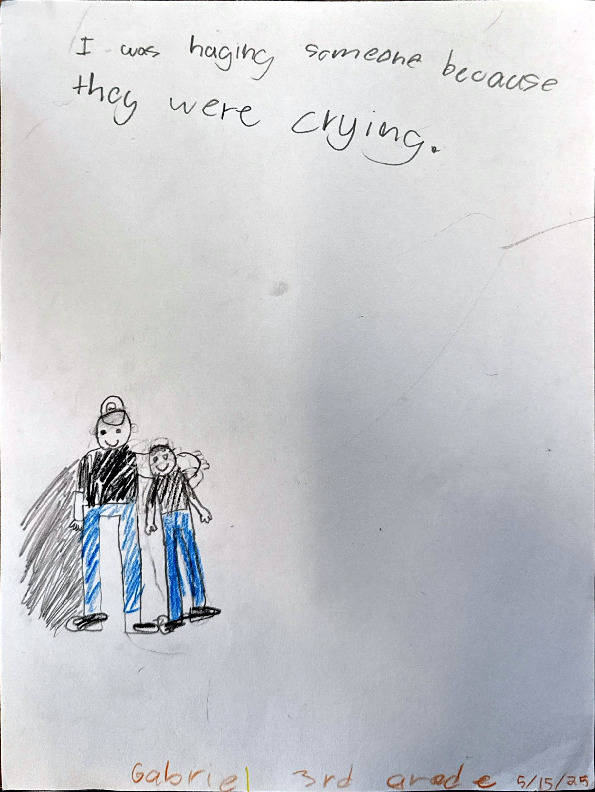 I was haging someone because
they were crying.
Gabriel 3rd grade 5/15/25